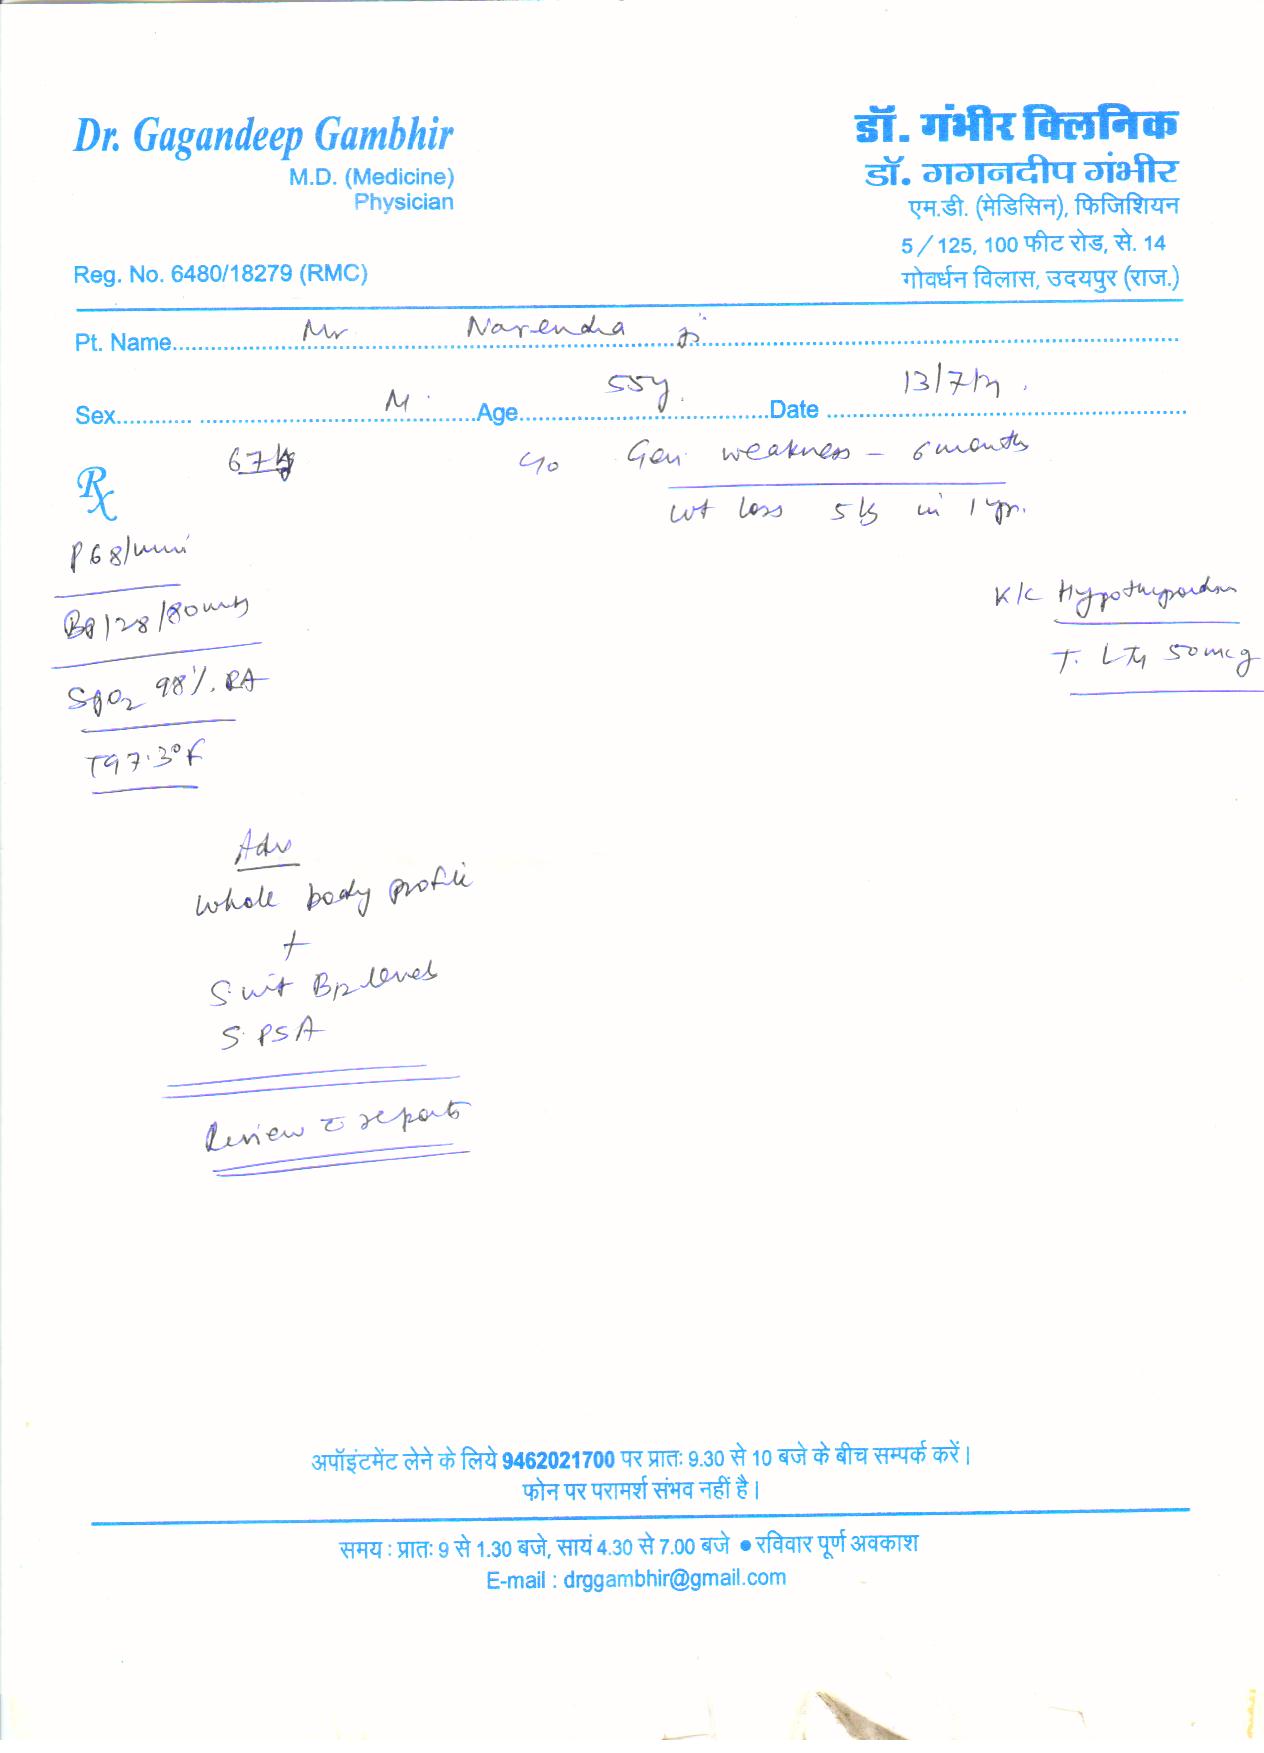 Dr. Gagandeep Gambhir
M.D. (Medicine)
Physician
Reg. No. 6480/18279 (RMC)
डॉ. गंभीर क्लिनिक
डॉ. गगनदीप गंभीर
एम.डी. (मेडिसिन), फिजिशियन
5/125, 100 फीट रोड, से. 14
गोवर्धन विलास, उदयपुर (राज.)
Pt. Name Mr Narendra ji
Sex M. Age 55y. Date 13/7/
67kg C/o Gen. weakness - 6 months
Rx wt loss 5 kg in 1 yr.
P 68/min
K/C Hypothyroidism
BP 128/80 mmHg
T. LTy 50mcg
SpO2 98%. RA
T 97.3°F
Adv
Whole body profile
+
S. vit B12 level
S. PSA
Review c reports
अपॉइंटमेंट लेने के लिये 9462021700 पर प्रातः 9.30 से 10 बजे के बीच सम्पर्क करें।
फोन पर परामर्श संभव नहीं है।
समय : प्रातः 9 से 1.30 बजे, सायं 4.30 से 7.00 बजे ● रविवार पूर्ण अवकाश
E-mail : drggambhir@gmail.com